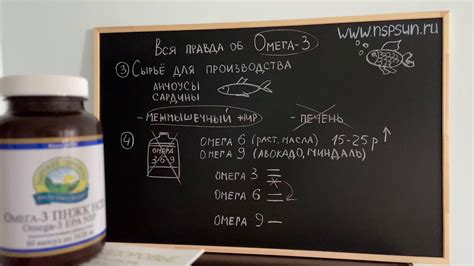 Вся правда об Омега-3
www.nspsun.ru
③ Сырьё для производства
анчоусы
сардины
- Межмышечный жир
- Печень
④ Омега 3 6 9
Омега 6 (раст. масла) 15-25р
Омега 9 (авокадо, миндаль)
Омега 3
Омега 6
Омега 9
Омега-3 ПНЖК НСП
Omega-3 EPA NSP
60 капсул по